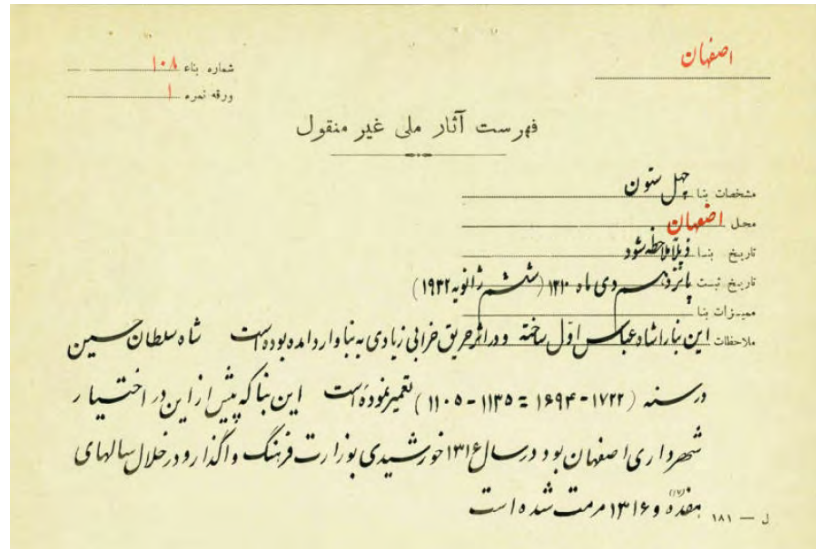 اصفهان
شماره بناء ۱۰۸
ورقه نمره ۱
فهرست آثار ملی غیر منقول
مشخصات بنا چهل ستون
محل اصفهان
تاریخ بنا ذیلاً ملاحظه شود
تاریخ ثبت پانزدهم دی ماه ۱۳۱۰ (ششم ژانویه ۱۹۳۲)
ممیزات بنا
ملاحظات این بنا را شاه عباس اول ساخته و در اثر حریق خرابی زیادی به بنا وارد آمده بوده است شاه سلطان حسین
در سنه (۱۷۲۲-۱۶۹۴ = ۱۱۳۵-۱۱۰۵) تعمیر نموده است این بنا که پیش از این در اختیار
شهرداری اصفهان بود در سال ۱۳۱۶ خورشیدی بوزارت فرهنگ واگذار و در خلال سالهای
هفده (۱۷) و ۱۳۱۶ مرمت شده است
ل — ۱۸۱